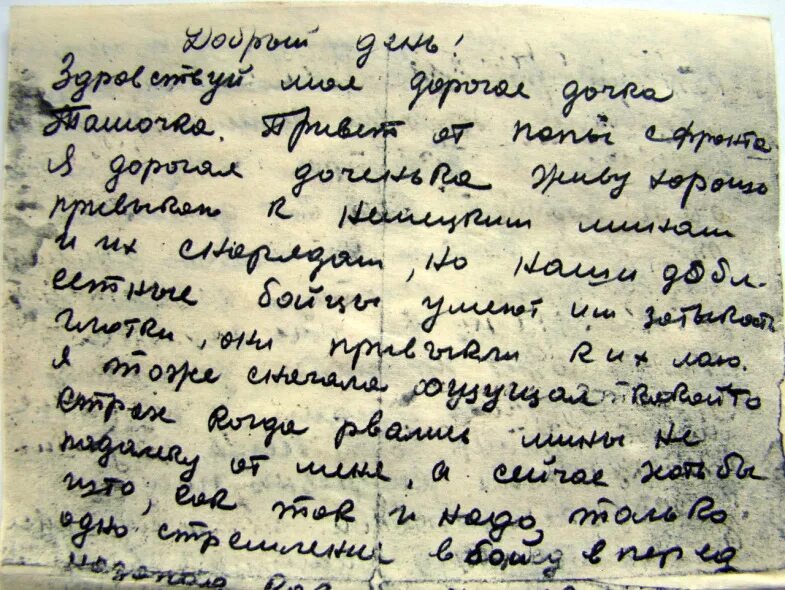 Добрый день!
Здравствуй моя дорогая дочка
Ташочка. Привет от папы с фронта
Я дорогая доченька живу хорошо
привыкаю к немецким минам
и их снарядам, но наши добл-
естные бойцы умеют им затыкать
глотки, они привыкли к их лаю.
Я тоже сначала ощущал какойто
страх когда рвались мины не
подалеку от меня, а сейчас хоть бы
что, как так и надо, только
одно стремление в бой вперед